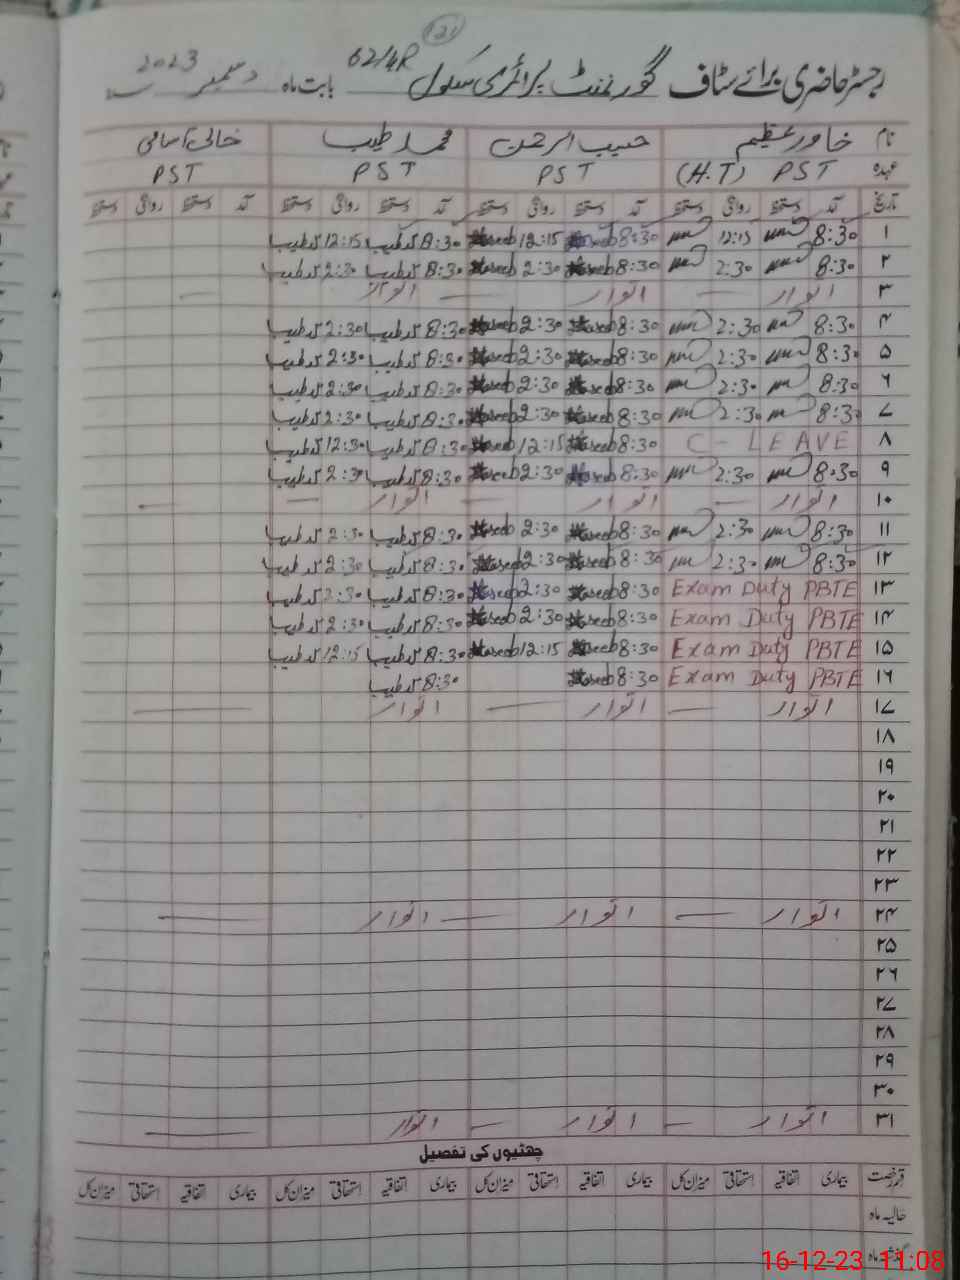 121
رجسٹر حاضری برائے سٹاف گورنمنٹ پرائمری سکول 62/4R بابت ماہ دسمبر 2023
نام خاور عظیم حسیب الرحمن محمد طیب خالی آسامی
عہدہ PST (H.T) PST PST PST
تاریخ آمد دستخط روانگی دستخط آمد دستخط روانگی دستخط آمد دستخط روانگی دستخط آمد دستخط روانگی دستخط
۱ 8:30 12:15 8:30 Haseeb 12:15 Haseeb 8:30 محمد طیب 12:15 محمد طیب
۲ 8:30 2:30 8:30 Haseeb 2:30 Haseeb 8:30 محمد طیب 2:30 محمد طیب
۳ اتوار — اتوار — اتوار —
۴ 8:30 2:30 8:30 Haseeb 2:30 Haseeb 8:30 محمد طیب 2:30 محمد طیب
۵ 8:30 2:30 8:30 Haseeb 2:30 Haseeb 8:30 محمد طیب 2:30 محمد طیب
۶ 8:30 2:30 8:30 Haseeb 2:30 Haseeb 8:30 محمد طیب 2:30 محمد طیب
۷ 8:30 2:30 8:30 Haseeb 2:30 Haseeb 8:30 محمد طیب 2:30 محمد طیب
۸ C - LEAVE 8:30 Haseeb 12:15 Haseeb 8:30 محمد طیب 12:30 محمد طیب
۹ 8:30 2:30 8:30 Haseeb 2:30 Haseeb 8:30 محمد طیب 2:30 محمد طیب
۱۰ اتوار — اتوار — اتوار — —
۱۱ 8:30 2:30 8:30 Haseeb 2:30 Haseeb 8:30 محمد طیب 2:30 محمد طیب
۱۲ 8:30 2:30 8:30 Haseeb 2:30 Haseeb 8:30 محمد طیب 2:30 محمد طیب
۱۳ Exam Duty PBTE 8:30 Haseeb 2:30 Haseeb 8:30 محمد طیب 2:30 محمد طیب
۱۴ Exam Duty PBTE 8:30 Haseeb 2:30 Haseeb 8:30 محمد طیب 2:30 محمد طیب
۱۵ Exam Duty PBTE 8:30 Haseeb 12:15 Haseeb 8:30 محمد طیب 12:15 محمد طیب
۱۶ Exam Duty PBTE 8:30 Haseeb 8:30 محمد طیب
۱۷ اتوار — اتوار — اتوار —
۱۸
۱۹
۲۰
۲۱
۲۲
۲۳
۲۴ اتوار — اتوار — اتوار —
۲۵
۲۶
۲۷
۲۸
۲۹
۳۰
۳۱ اتوار — اتوار — اتوار —
چھٹیوں کی تفصیل
قسم رخصت بیماری اتفاقیہ استحقاقی میزان کل بیماری اتفاقیہ استحقاقی میزان کل بیماری اتفاقیہ استحقاقی میزان کل بیماری اتفاقیہ استحقاقی میزان کل
حالیہ ماہ
گذشتہ ماہ
16-12-23 11:08